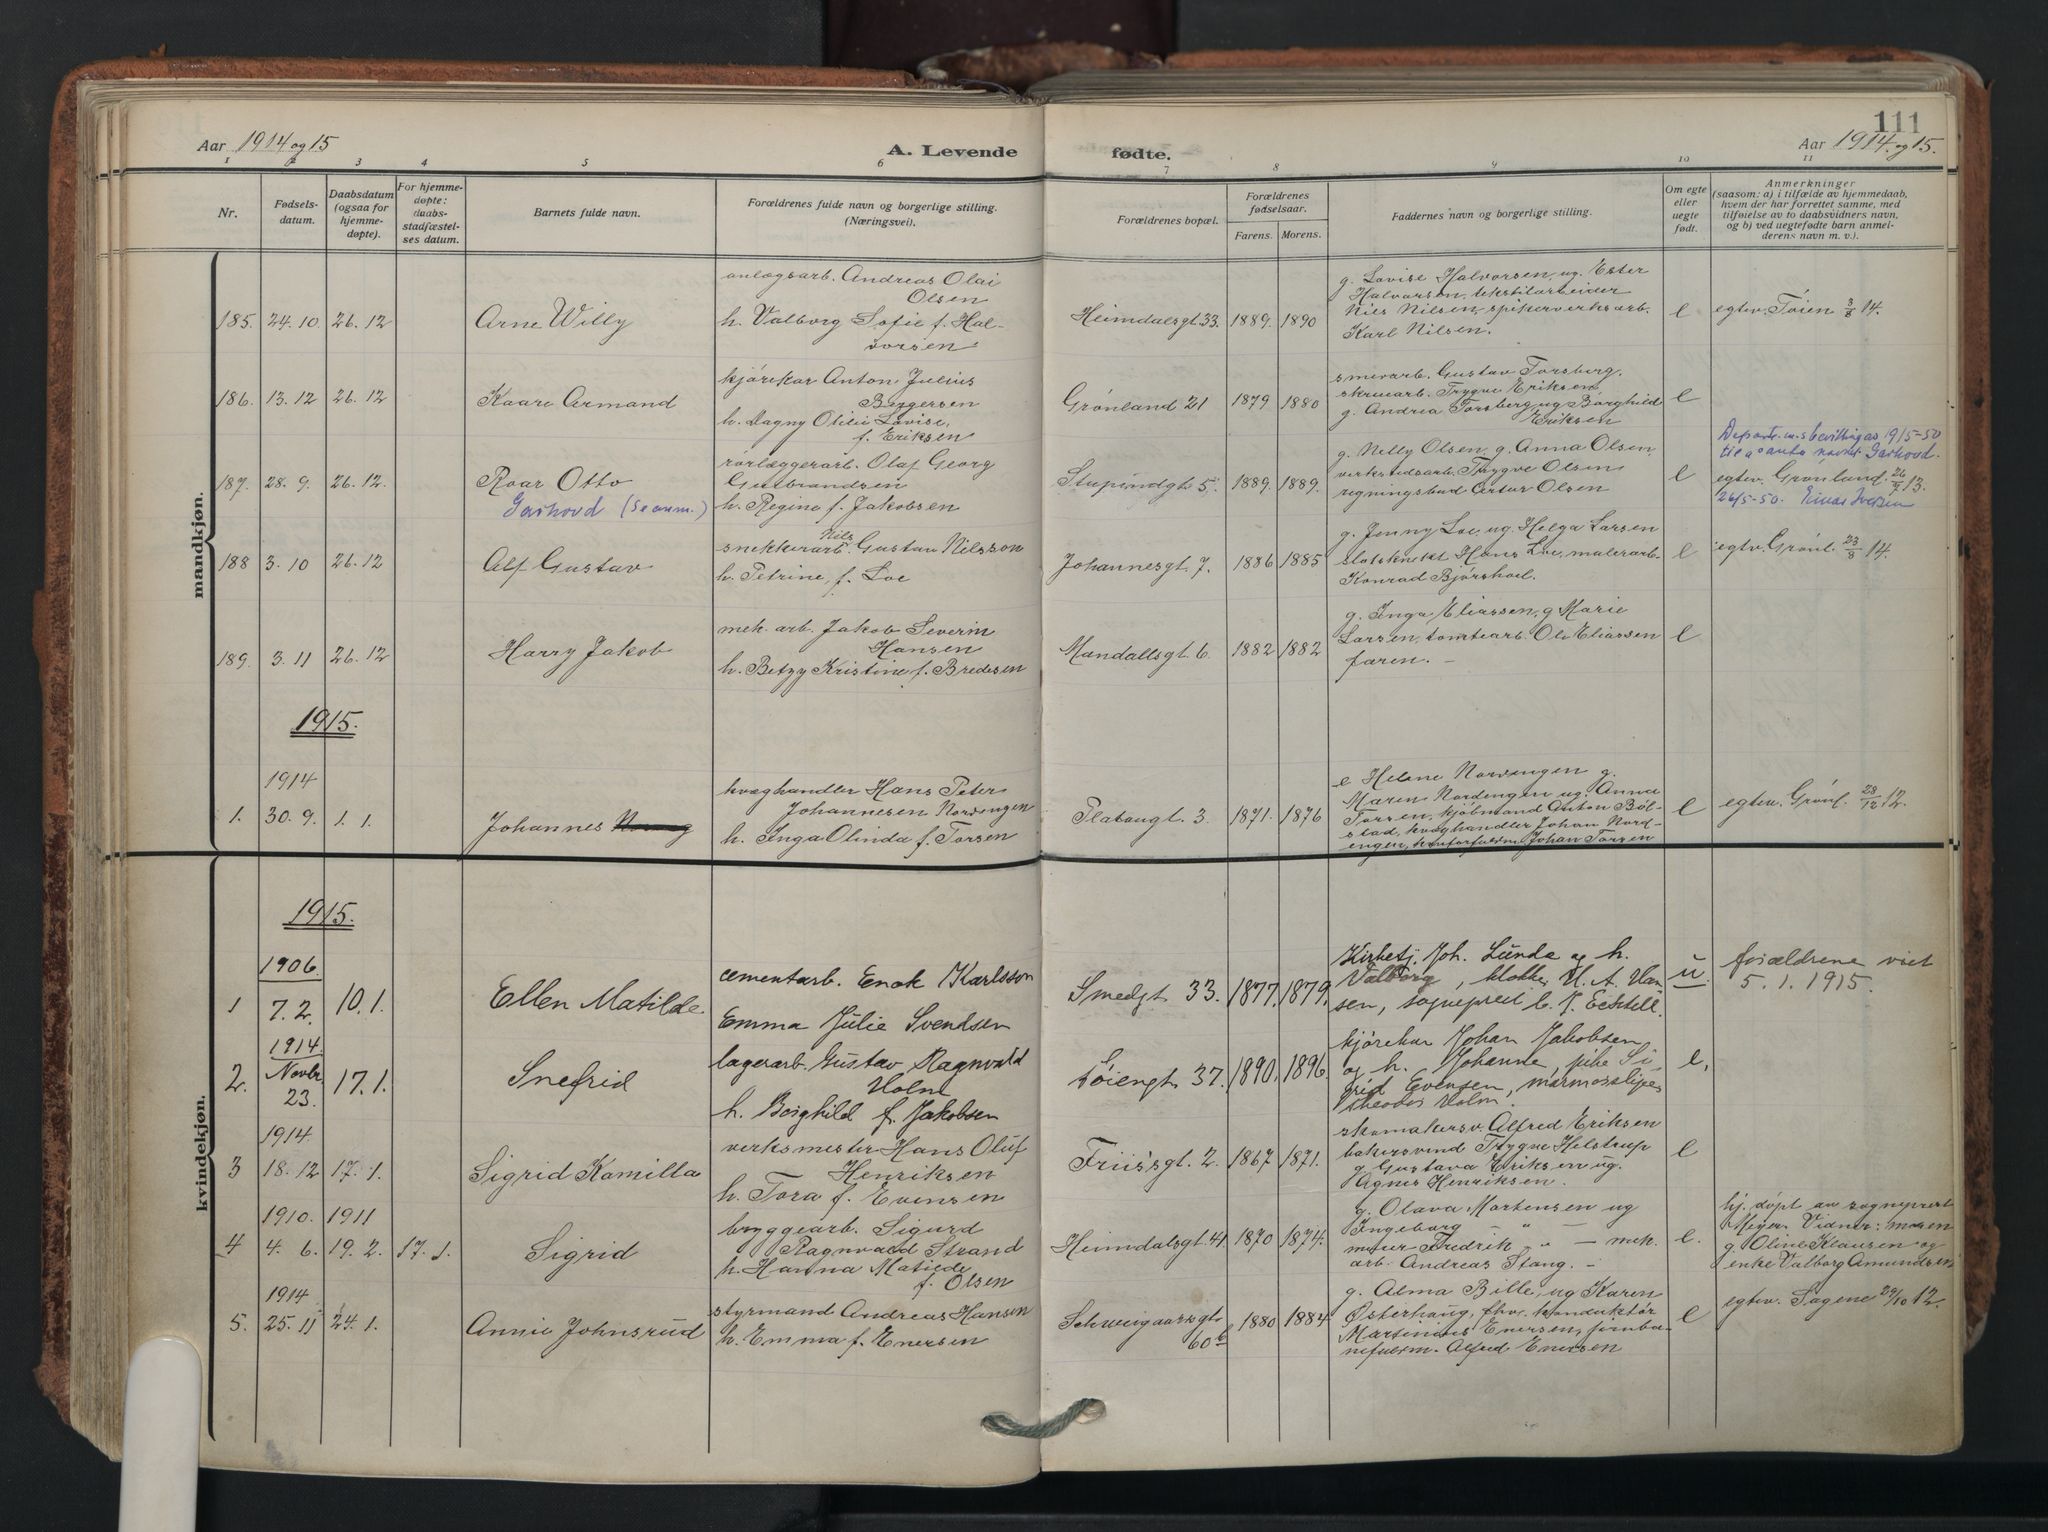 111
Aar 1914 og 15
A. Levende
fødte.
Aar 1914 og 15.
1 2 3 4 5 6 7 8 9 10 11
Nr.
Fødsels-
datum.
Daabsdatum
(ogsaa for
hjemme-
døpte).
For hjemme-
døpte:
daabs-
stadfæstel-
ses datum.
Barnets fulde navn.
Forældrenes fulde navn og borgerlige stilling.
(Næringsvei).
Forældrenes bopæl.
Forældrenes
fødselsaar.
Farens. Morens.
Faddernes navn og borgerlige stilling.
Om egte
eller
uegte
født.
Anmerkninger
(saasom: a) i tilfælde av hjemmedaab,
hvem der har forrettet samme, med
tilføielse av to daabsvidners navn,
og b) ved uegtefødte barn anmel-
derens navn m. v.).
mandkjøn.
185. 24.10. 26.12
Arne Willy
anlægsarb. Andreas Olai
Olsen
h. Valborg Sofie f. Hal-
vorsen
Heimdalsgt. 33. 1889. 1890
g. Lovise Halvorsen, ug. Ester
Halvorsen, tekstilarbeider
Nils Nilsen, spikerverksarb.
Karl Nilsen.
e
egtev. Tøien 3/8 14.
186. 13.12 26.12
Kaare Armand
kjørekar Anton Julius
Birgersen
h. Dagny Otilie Lovise,
f. Eriksen
Grønland 21 1879 1880
smedarb. Gustav Forsberg,
skruearb. Trygve Eriksen
g. Andrea Forsberg ug Borghild
Eriksen
e
187. 28.9. 26.12.
Roar Otto
Garhovd (se anm.)
rørlæggerarb. Olaf Georg
Gulbrandsen
h. Regine f. Jakobsen
Stupindgt. 5. 1889. 1889.
g. Nelly Olsen, g. Anna Olsen
verkstedsarb. Trygve Olsen
regningsbud Artur Olsen
e
Departe.m.s bevilling av 19/5-50
til at anta navnet Garhovd.
egtev. Grønland 26/7 13.
26/5-50. Einar Iversen
188 3.10 26.12
Alf Gustav
snekkerarb. Nils Gustav Nilsson
h. Petrine, f. Loe
Johannesgt. 7. 1886 1885
g. Jenny Loe, ug. Helga Larsen
slotsknekt Hans Loe, malerarb.
Konrad Bjørshoel.
e
egtv. Grønl. 23/8 14.
189. 3.11 26.12
Harry Jakob
mek. arb. Jakob Severin
Hansen
h. Betzy Kristine f. Bredesen
Mandallsgt. 6. 1882 1882
g. Inga Eliassen, g Marie
Larsen, tomtearb. Ole Eliassen
faren. –
e
1915.
1914
1. 30.9. 1.1.
Johannes
kvæghandler Hans Peter
Johannesen Nordengen
h. Inga Olinda f. Torsen
Platougt. 3. 1871. 1876
e Helene Nordengen g.
Maren Nordengen ug. Anna
Torsen, kjøbmand Anton Bøl-
stad, kvæghandler Johan Nord-
engen, Johan Torsen
e
egtev. Grønl. 28/12 12.
kvindekjøn.
1915.
1906.
1 7.2. 10.1.
Ellen Matilde
cementarb. Enok Karlsson
Emma Julie Svendsen
Smedgt 33. 1877. 1879.
Kirketj. Joh. Lunde og h.
Valborg, klokker H. A. Han-
sen, sogneprest C. J. Eckhell.
u.
forældrene viet
5.1.1915.
1914.
2. Novbr. 23. 17.1.
Snefrid
lagerarb. Gustav Ragnvald
Holm
h. Borghild f. Jakobsen
Tøiengt 37. 1890. 1896.
kjørekar Johan Jakobsen
og h. Johanne, pike Si-
grid Evensen, marmorsliper
Theodor Holm.
e.
1914.
3 18.12 17.1.
Sigrid Kamilla
verksmester Hans Oluf
Henriksen
h. Tora f. Evensen
Friisgt. 2. 1867 1871.
skomakersv. Alfred Eriksen
bakersvend Trygve Helstrup
g. Gustava Eriksen ug.
Agnes Henriksen.
e
1910. 1911
4 4.6. 19.2. 17.1.
Sigrid
bryggearb. Sigurd
Ragnvald Strand
h. Hanna Matilde
f. Olsen
Heimdalsgt. 41. 1870 1874.
g. Olava Mortensen ug
Ingeborg – " –
murer Fredrik " – mek.
arb. Andreas Stang. –
e.
hj. døpt av sogneprest
Meyer. Vidner: moren
g. Oline Klausen og
enke Valborg Amundsen
1914
5. 25.11 24.1.
Annie Johnsrud
styrmand Andreas Hansen
h. Emma f. Enersen
Schweigaardsgt. 60b 1880 1884
g. Alma Bille, ug Karen
Østerhaug, fhv. konduktør
Martinius Enersen, jernba-
nefuldm. Alfred Enersen
e
egtev. Sagene 27/10 12.